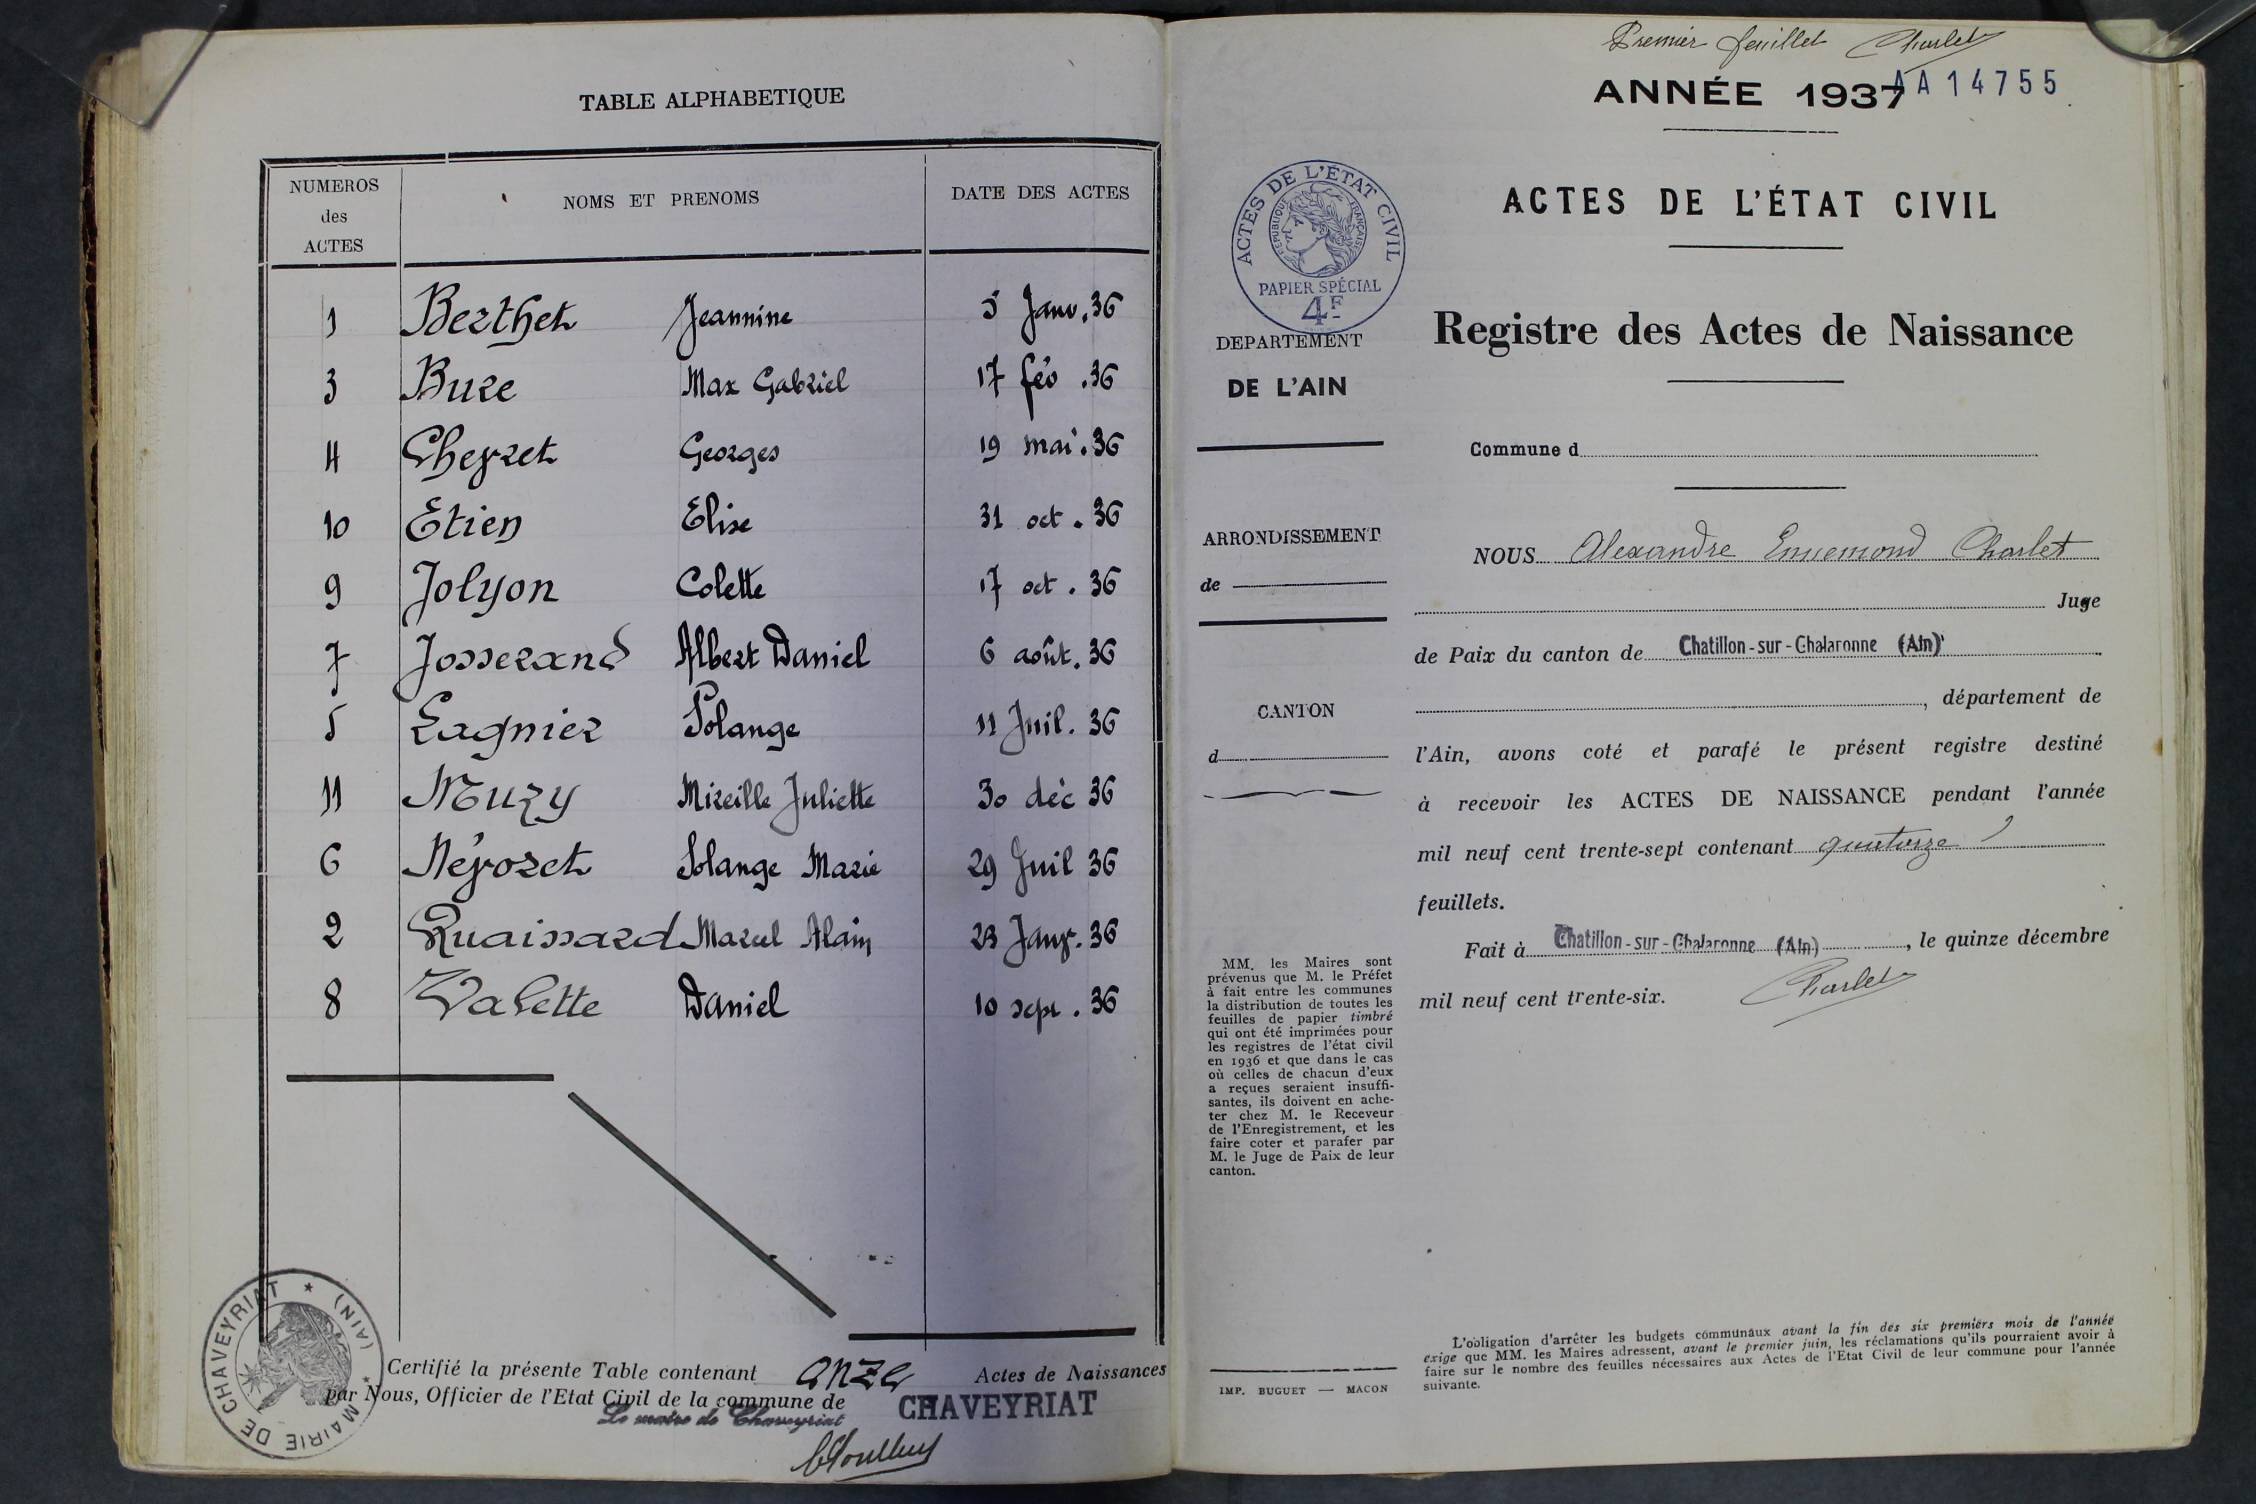 TABLE ALPHABETIQUE
NUMEROS des ACTES NOMS ET PRENOMS DATE DES ACTES
1 Berthet Jeannine 5 Janv. 36
3 Bure Max Gabriel 17 fév. 36
4 Cheyret Georges 19 mai. 36
10 Etien Elise 31 oct. 36
9 Jolyon Colette 17 oct. 36
7 Josserand Albert Daniel 6 août. 36
5 Lagnier Solange 11 Juil. 36
11 Muzy Mireille Juliette 30 déc 36
6 Néyoret Solange Marie 29 Juil 36
2 Quaissard Marcel Alain 23 Janv. 36
8 Valette Daniel 10 sept. 36
Certifié la présente Table contenant onze Actes de Naissances
par Nous, Officier de l'Etat Civil de la commune de CHAVEYRIAT
Le maire de Chaveyriat
MAIRIE DE CHAVEYRIAT * (AIN) *
Premier feuillet Charlet
ANNÉE 1937
AA14755
ACTES DE L'ÉTAT CIVIL
Registre des Actes de Naissance
ACTES DE L'ÉTAT CIVIL
RÉPUBLIQUE FRANÇAISE
PAPIER SPÉCIAL
4F
DEPARTEMENT
DE L'AIN
ARRONDISSEMENT
de
CANTON
d
MM. les Maires sont
prévenus que M. le Préfet
à fait entre les communes
la distribution de toutes les
feuilles de papier timbré
qui ont été imprimées pour
les registres de l'état civil
en 1936 et que dans le cas
où celles de chacun d'eux
a reçues seraient insuffi-
santes, ils doivent en ache-
ter chez M. le Receveur
de l'Enregistrement, et les
faire coter et parafer par
M. le Juge de Paix de leur
canton.
IMP. BUGUET — MACON
Commune d
NOUS Alexandre Ennemond Charlet
Juge
de Paix du canton de Chatillon-sur-Chalaronne (Ain)
, département de
l'Ain, avons coté et parafé le présent registre destiné
à recevoir les ACTES DE NAISSANCE pendant l'année
mil neuf cent trente-sept contenant quatorze
feuillets.
Fait à Chatillon-sur-Chalaronne (Ain), le quinze décembre
mil neuf cent trente-six.
Charlet
L'obligation d'arrêter les budgets communaux avant la fin des six premiers mois de l'année
exige que MM. les Maires adressent, avant le premier juin, les réclamations qu'ils pourraient avoir à
faire sur le nombre des feuilles nécessaires aux Actes de l'Etat Civil de leur commune pour l'année
suivante.